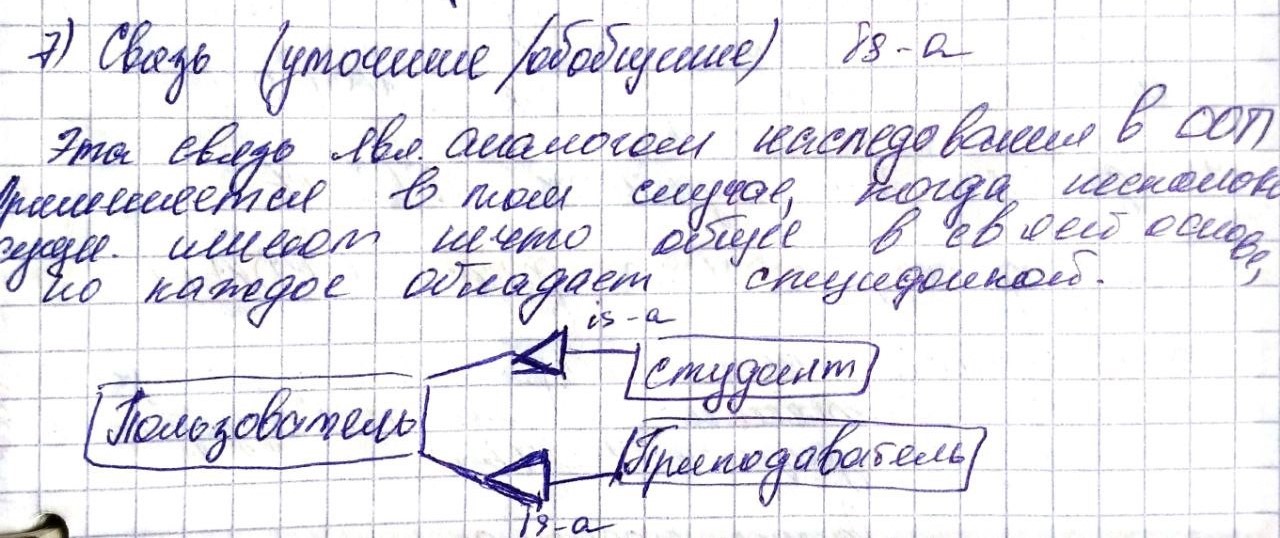 7) Связь (уточнение/обобщение) is-a
Эта связь явл. аналогом наследования в ООП
Применяется в том случае, когда несколько
сущн. имеют нечто общее в своей основе,
но каждое обладает спецификой.
is-a
студент
Пользователь
Преподаватель
is-a